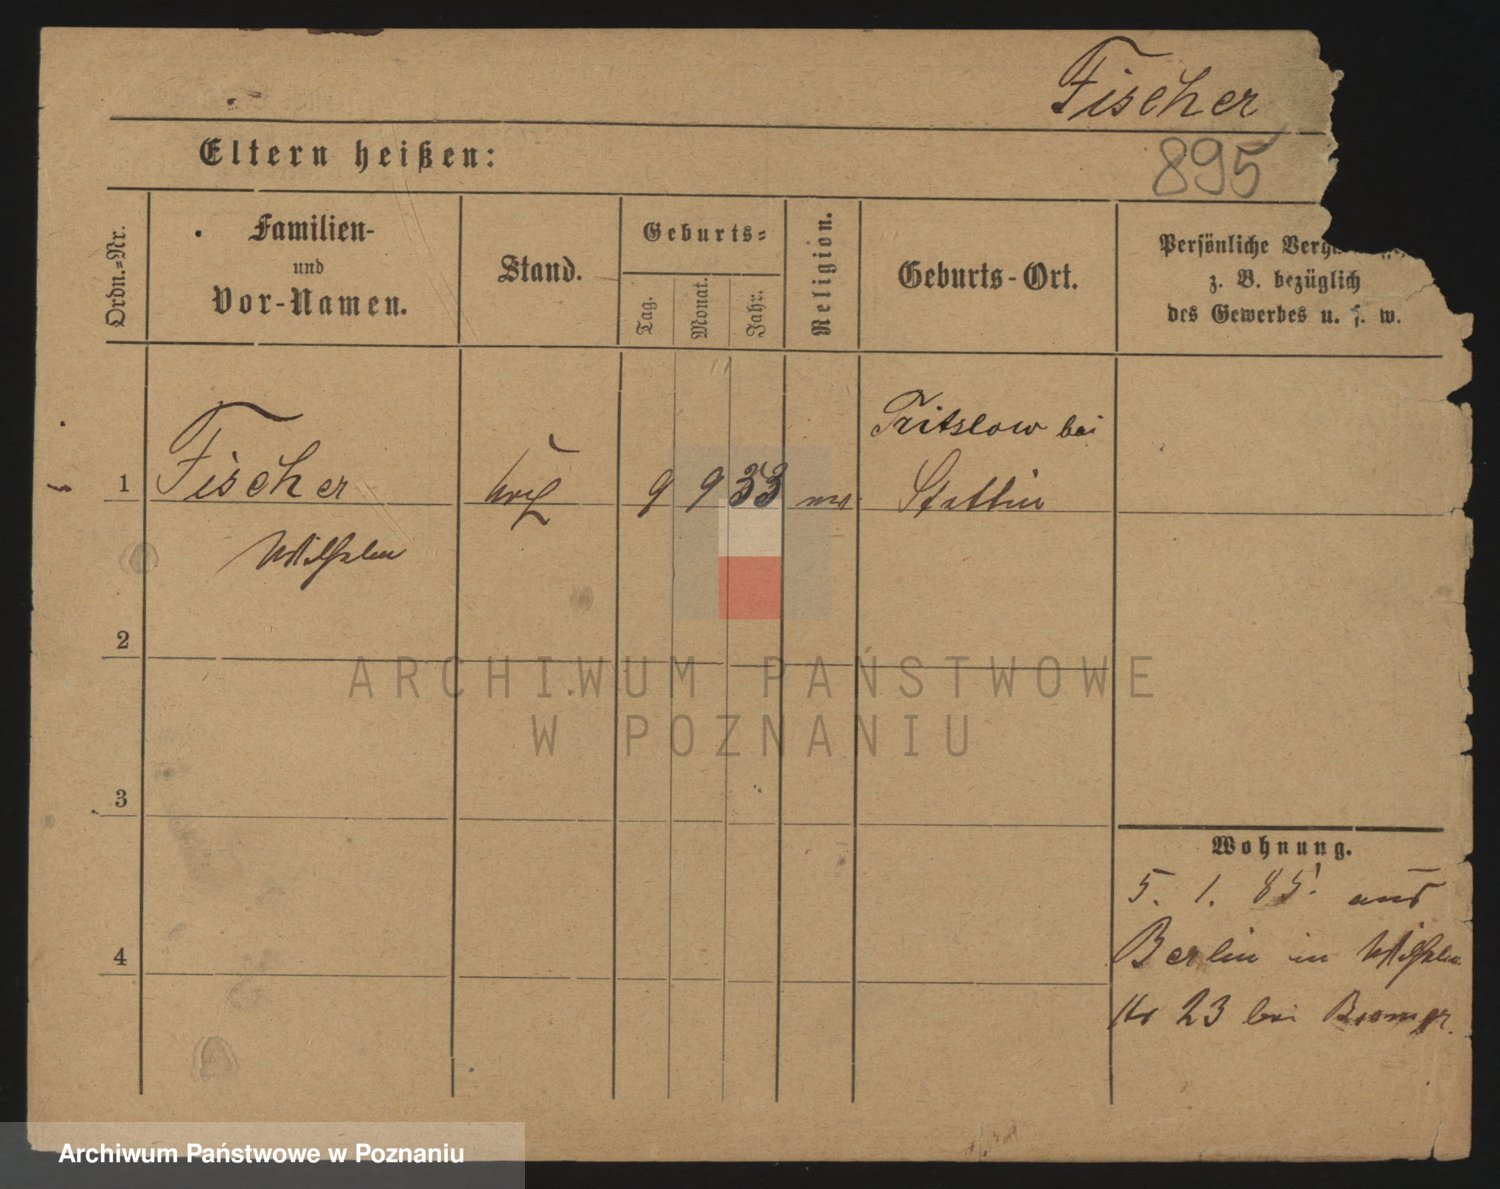 Fischer
895
Eltern heißen:
Ordn.-Nr.
Familien-
und
Vor-Namen.
Stand.
Geburts-
Tag.
Monat.
Jahr.
Religion.
Geburts-Ort.
Persönliche
z. B. bezüglich
des Gewerbes u. s. w.
Tritslow bei
1 Fischer 9 9 33 Stettin
Wilhelm
2
ARCHIWUM PAŃSTWOWE
W POZNANIU
3
4
Wohnung.
5. 1. 85. aus
Berlin in Wilhelm
23 bei
Archiwum Państwowe w Poznaniu